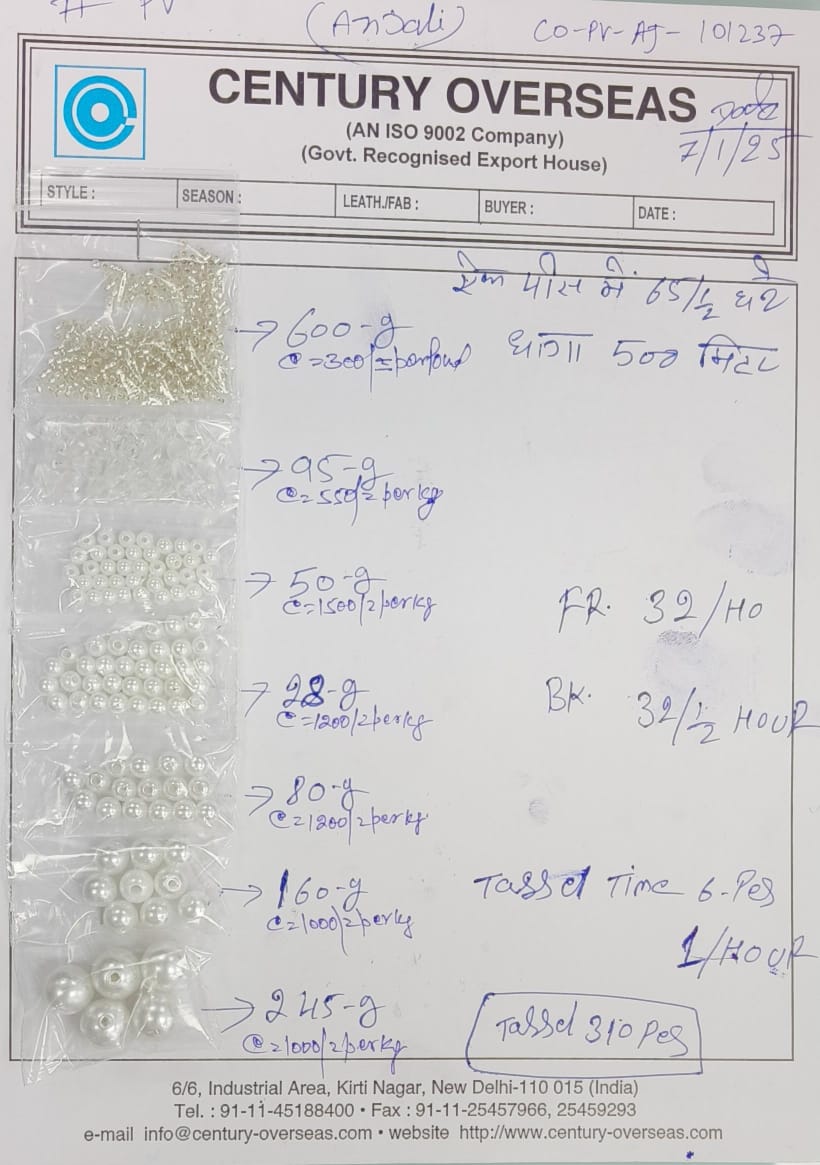 (Anjali) CO-PV-AJ-101237
CENTURY OVERSEAS
(AN ISO 9002 Company)
(Govt. Recognised Export House)
7/1/25
STYLE :
SEASON :
LEATH./FAB :
BUYER :
DATE :
एक पीस में 65/1/2 घंटे
→ 600-g
@=300/= perfoud
धागा 500 मिटर
→ 95-g
@=550/= per kg
→ 50-g
@=1500/= per kg
FR. 32/HO
→ 28-g
@=1200/= per kg
BK. 32/1/2 HOUR
→ 80-g
@=1200/= per kg
→ 160-g
@=1000/= per kg
Tassel Time 6-Pes
1/HOUR
→ 245-g
@=1000/= per kg
Tassel 310 Pes
6/6, Industrial Area, Kirti Nagar, New Delhi-110 015 (India)
Tel. : 91-11-45188400 • Fax : 91-11-25457966, 25459293
e-mail info@century-overseas.com • website http://www.century-overseas.com